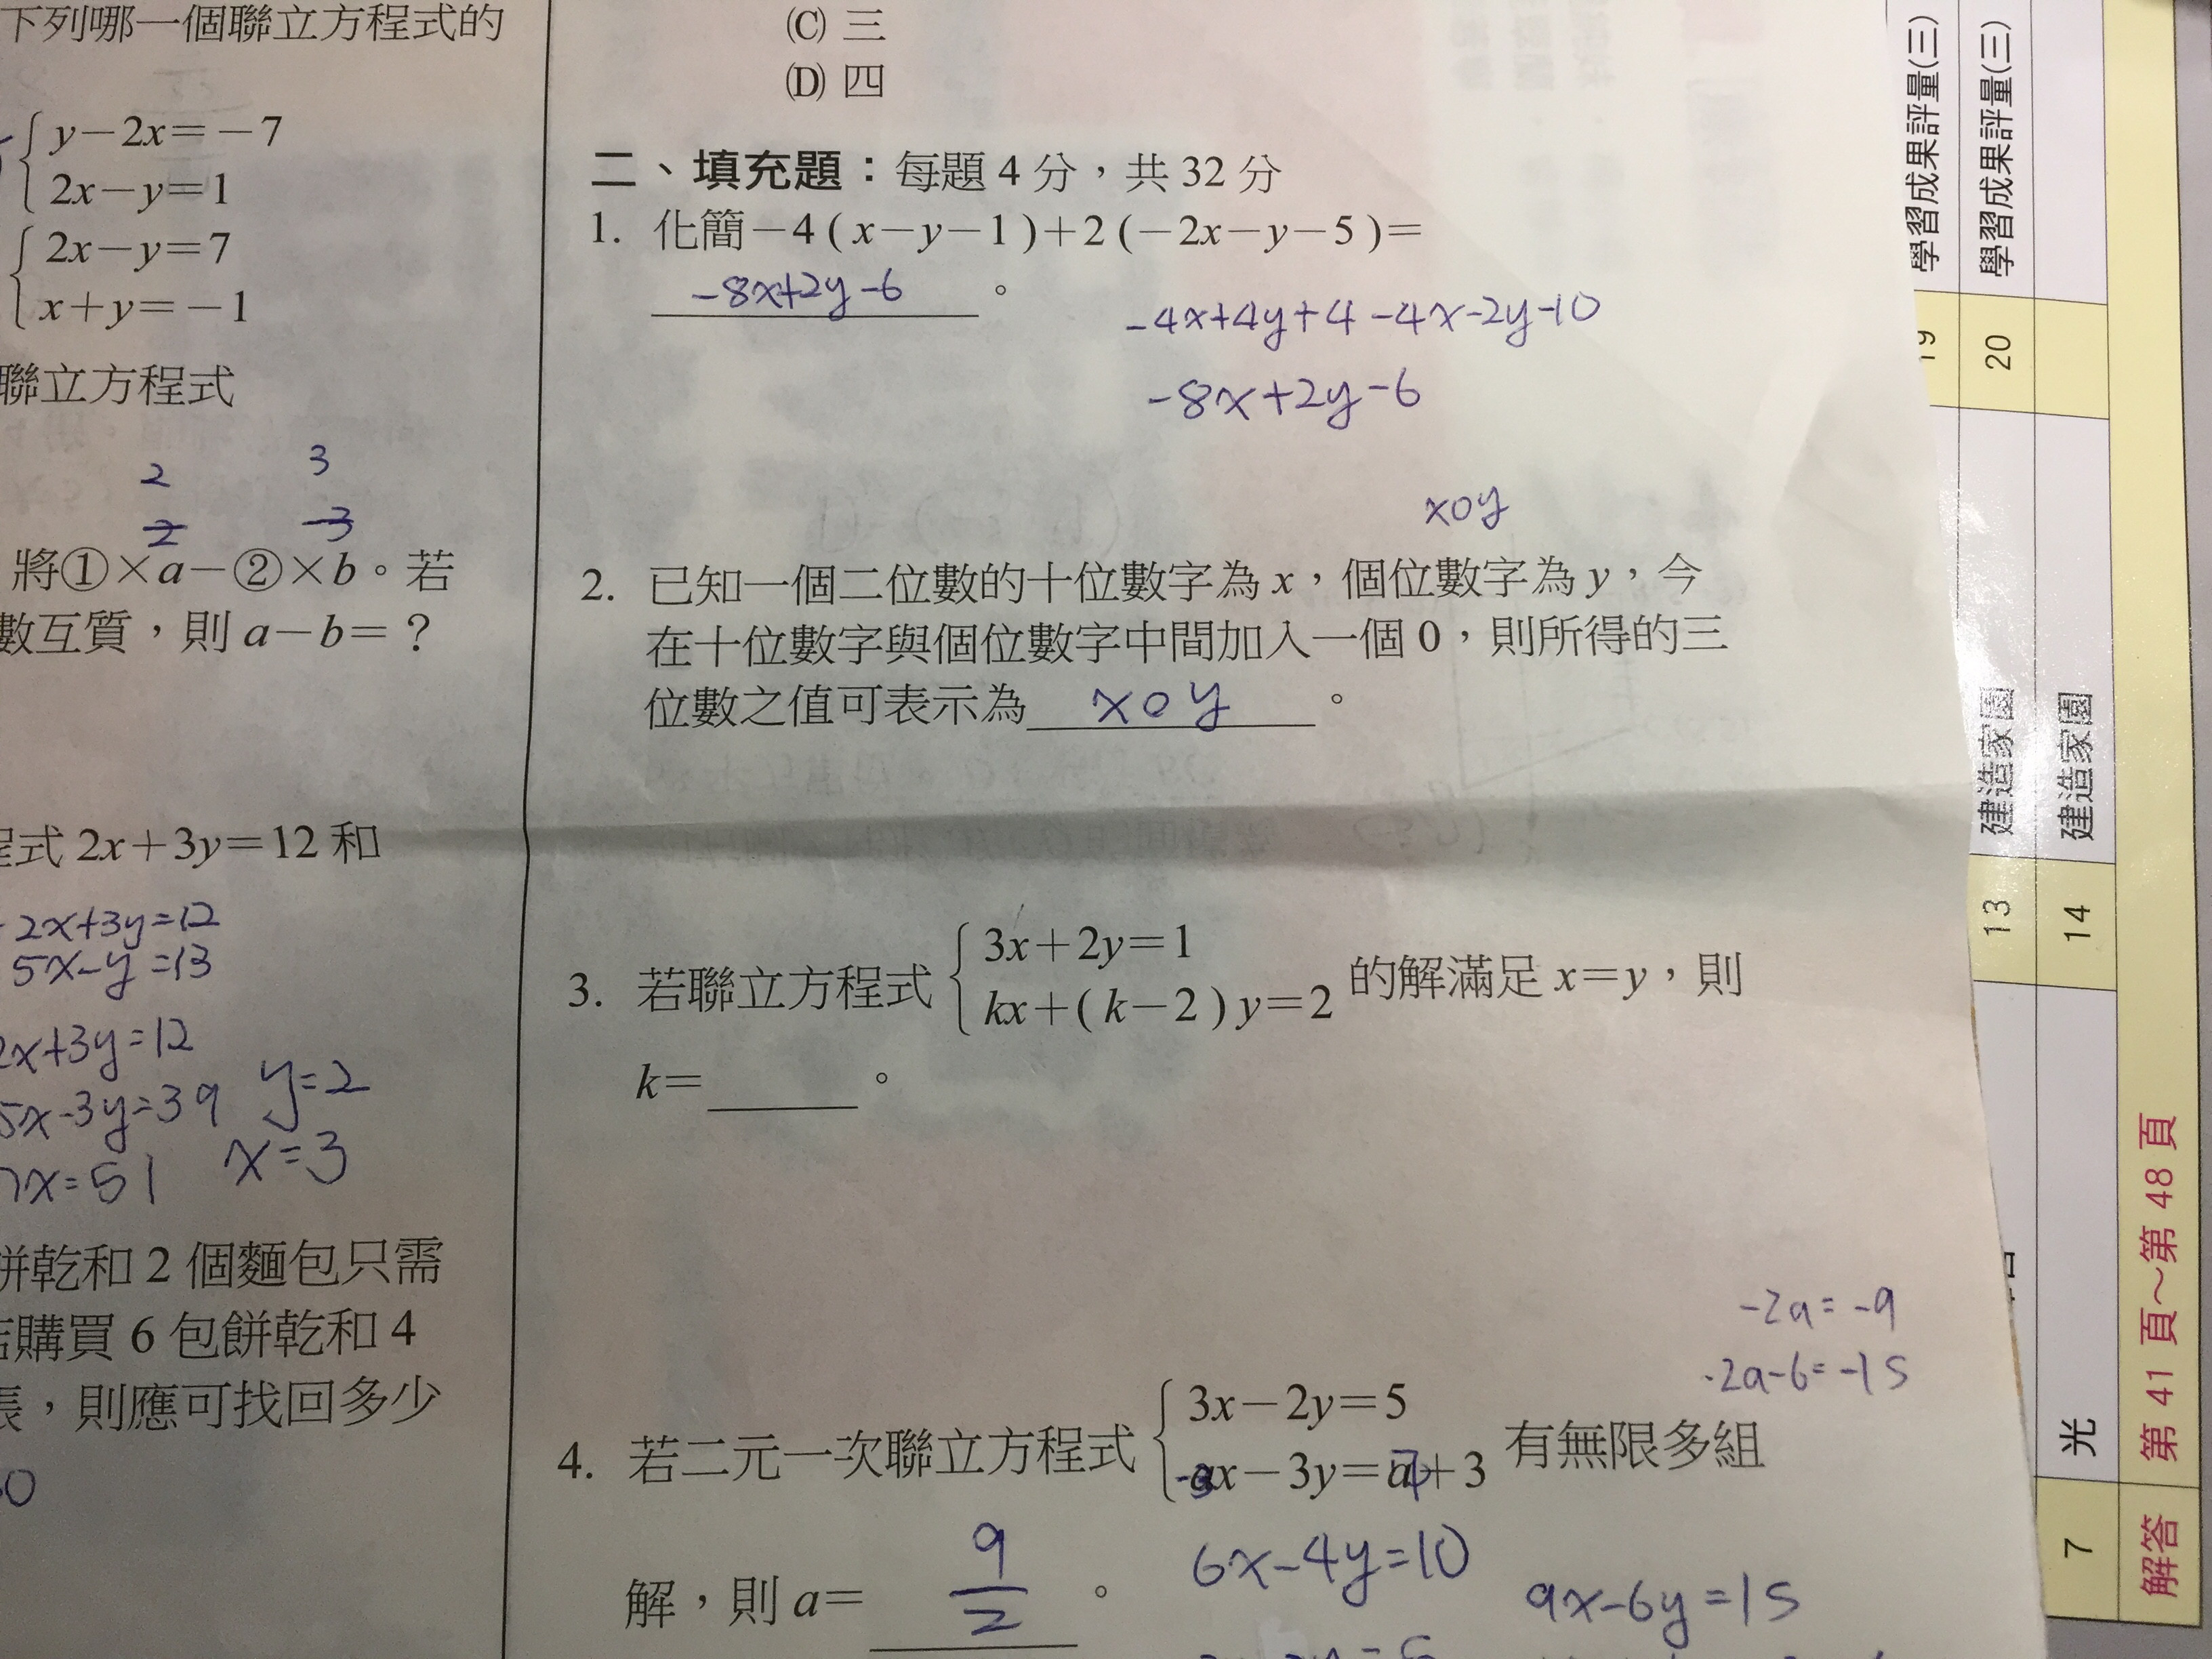 下列哪一個聯立方程式的
y－2x＝－7
2x－y＝1
2x－y＝7
x＋y＝－1
聯立方程式
2 3
2 3
將①×a－②×b。若
數互質，則 a－b＝？
程式 2x＋3y＝12 和
2x+3y=12
5x-y=13
2x+3y=12
5x-3y=39 y=2
7x=51 x=3
餅乾和 2 個麵包只需
購買 6 包餅乾和 4
，則應可找回多少
0
(C) 三
(D) 四
二、填充題：每題 4 分，共 32 分
1. 化簡－4（x－y－1）＋2（－2x－y－5）＝
-8x+2y-6 。
-4x+4y+4-4x-2y-10
-8x+2y-6
x0y
2. 已知一個二位數的十位數字為 x，個位數字為 y，今
在十位數字與個位數字中間加入一個 0，則所得的三
位數之值可表示為 x0y 。
3. 若聯立方程式 3x＋2y＝1 的解滿足 x＝y，則
kx＋（k－2）y＝2
k＝ 。
-2a=-9
-2a-6=-15
4. 若二元一次聯立方程式 3x－2y＝5 有無限多組
ax－3y＝a＋3
解，則 a＝ 9/2 。
6x-4y=10
9x-6y=15
學習成果評量(三)
19
學習成果評量(三)
20
建造家園
13
建造家園
14
光
7
解答 第 41 頁～第 48 頁